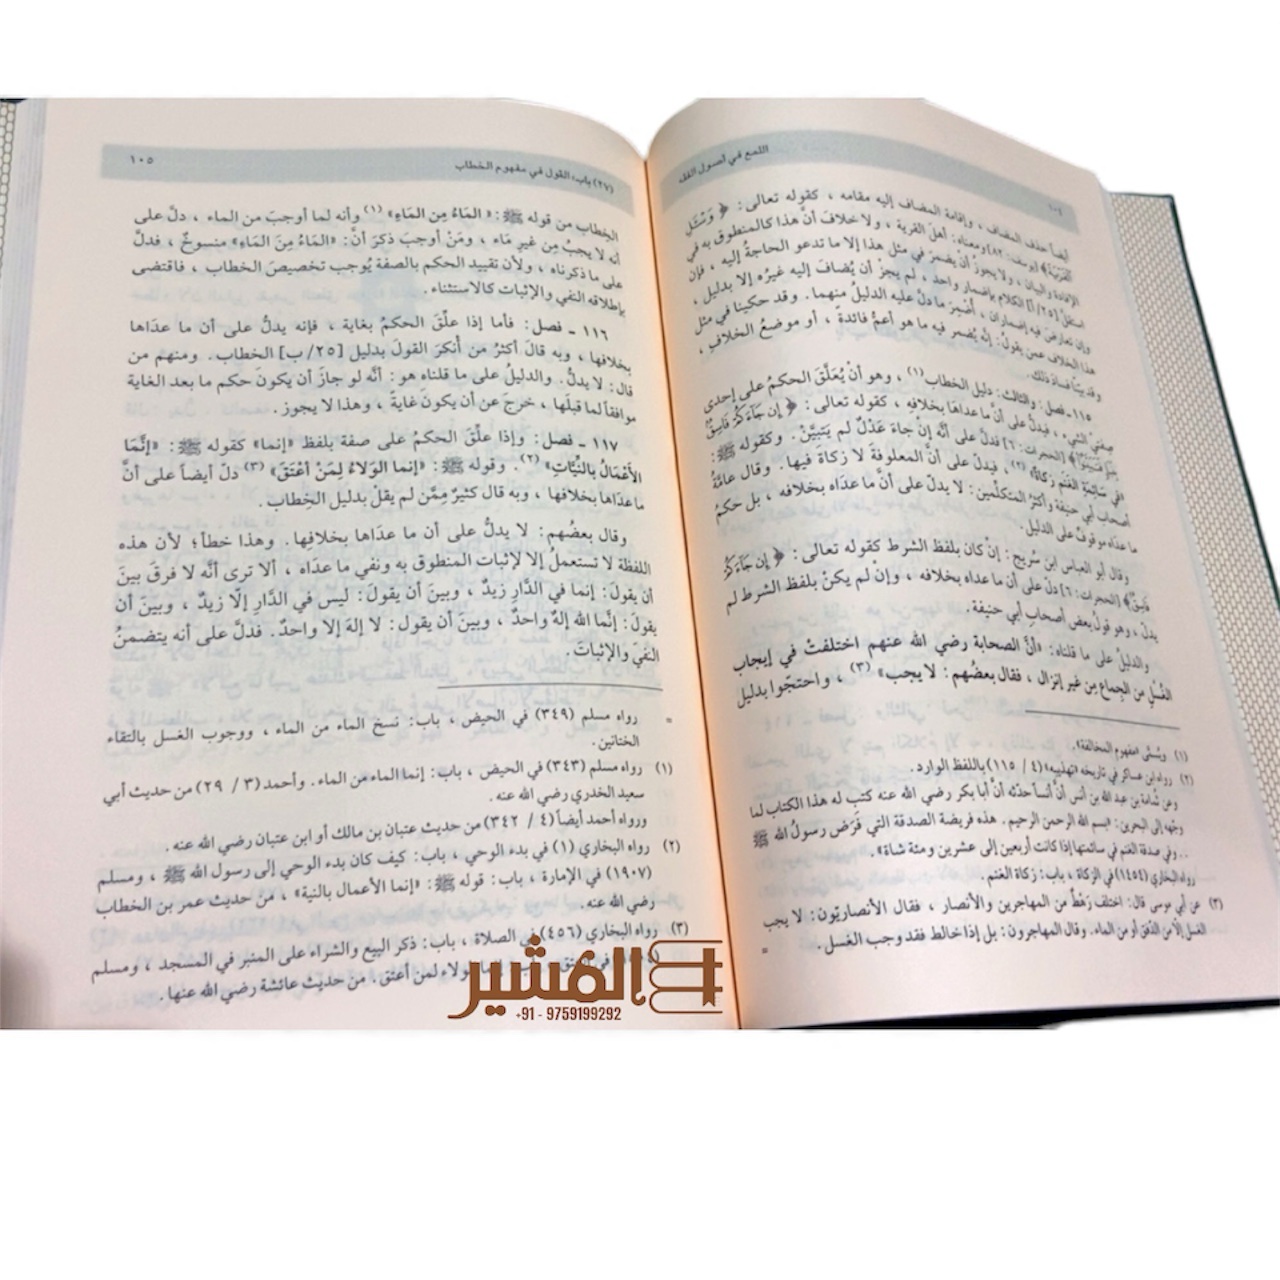 ١٠٤
اللمع في أصول الفقه
أيضاً حذف المضاف ، وإقامة المضاف إليه مقامه ، كقوله تعالى : ﴿ وَسْـَٔلِ
الْقَرْيَةَ﴾ [يوسف: ٨٢] ومعناه: أهل القرية ، ولا خلاف أنَّ هذا كالمنطوق به في
الإفادة والبيان ، ولا يجوزُ أنْ يضمرَ في مثل هذا إلا ما تدعو الحاجةُ إليه ، فإن
استقلَّ [٢٥/ أ] الكلام بإضمار واحد ، لم يجزْ أن يُضافَ إليه غيرُه إلا بدليل ،
وإن تعارضَ فيه إضماران ، أُضمِرَ ما دلَّ عليه الدليلُ منهما . وقد حكينا في مثل
هذا الخلاف عمن يقولُ: إنَّه يُضمر فيه ما هو أعمُّ فائدةً ، أو موضعُ الخلافِ ،
وقد بيّنّا فسادَ ذلك.
١١٥ ـ فصل: والثالث: دليل الخطاب(١) ، وهو أنْ يُعلَّقَ الحكمُ على إحدى
صفتي الشيء ، فيدلُّ على أنَّ ما عداها بخلافهِ ، كقوله تعالى : ﴿ إِن جَآءَكُمْ فَاسِقٌ
بِنَبَإٍ فَتَبَيَّنُوٓا﴾ [الحجرات: ٦] فدلَّ على أنَّه إنْ جاءَ عَدْلٌ لم يَتبيَّنْ . وكقوله ﷺ :
«في سَائِمَةِ الغَنَمِ زَكَاةٌ» (٢) ، فيدلُّ على أنَّ المعلوفةَ لا زكاةَ فيها . وقال عامَّةُ
أصحاب أبي حنيفة وأكثرُ المتكلِّمين: لا يدلّ على أنَّ ما عدَاه بخلافه ، بل حكمُ
ما عدَاه موقوفٌ على الدليل.
وقال أبو العباس ابن سُريج: إنْ كان بلفظ الشرط كقوله تعالى : ﴿ إِن جَآءَكُمْ
فَاسِقٌ﴾ [الحجرات: ٦] دلَّ على أن ما عداه بخلافه ، وإنْ لم يكنْ بلفظ الشرط لم
يدلّ ، وهو قولُ بعض أصحاب أبي حنيفة.
والدليلُ على ما قلناه: «أنَّ الصحابة رضي الله عنهم اختلفتْ في إيجاب
الغُسْلِ مِن الجِماع مِن غيرِ إنزال ، فقال بعضُهم: لا يجب» (٣) ، واحتجّوا بدليل
(١) ويسُمَّى «مفهوم المخالفة».
(٢) رواه ابن عساكر في تاريخه «تهذيبه» (٤ / ١١٥) باللفظ الوارد.
وعن ثُمامة بن عبد الله بن أنس أنَّ أنساً حدّثه أنَّ أبا بكر رضي الله عنه كتب له هذا الكتاب لما
وجّهه إلى البحرين: «بسم الله الرحمن الرحيم. هذه فريضة الصدقة التي فَرَضَ رسولُ الله ﷺ
.. وفي صدقة الغنم في سائمتها إذا كانت أربعين إلى عشرين ومئة شاة».
رواه البخاري (١٤٥٤) في الزكاة ، باب: زكاة الغنم.
(٣) عن أبي موسى قال: اختلف رَهْطٌ من المهاجرين والأنصار ، فقال الأنصاريّون: لا يجب
الغسل إلا من الدَّفق أو من الماء. وقال المهاجرون: بل إذا خالط فقد وجب الغسل . =
(٢٧) باب: القول في مفهوم الخطاب
١٠٥
الخِطاب من قوله ﷺ : «المَاءُ مِنَ المَاءِ» (١) وأنه لما أوجبَ من الماء ، دلَّ على
أنه لا يجبُ مِن غيرِ مَاء ، ومَنْ أوجبَ ذكرَ أنَّ: «المَاءُ مِنَ المَاءِ» منسوخٌ ، فدلَّ
على ما ذكرناه ، ولأن تقييد الحكم بالصفة يُوجب تخصيصَ الخطاب ، فاقتضى
بإطلاقه النفي والإثبات كالاستثناء.
١١٦ ـ فصل: فأما إذا علّقَ الحكمُ بغاية ، فإنه يدلُّ على أن ما عدَاها
بخلافها ، وبه قالَ أكثرُ من أَنكرَ القولَ بدليل [٢٥/ ب] الخطاب. ومنهم من
قال: لا يدلُّ. والدليلُ على ما قلناه هو: أنَّه لو جازَ أن يكونَ حكم ما بعد الغاية
موافقاً لما قبلَها ، خرجَ عن أن يكونَ غايةً ، وهذا لا يجوز.
١١٧ ـ فصل: وإذا علِّقَ الحكمُ على صفة بلفظ «إنما» كقوله ﷺ : «إنَّمَا
الأعْمَالُ بالنيّاتِ» (٢). وقوله ﷺ : «إنما الوَلاءُ لِمَنْ أَعْتَقَ» (٣) دلّ أيضاً على أنَّ
ما عدَاها بخلافها ، وبه قال كثيرٌ ممَّن لم يقلْ بدليل الخطاب.
وقال بعضُهم: لا يدلُّ على أن ما عدَاها بخلافِها. وهذا خطأ؛ لأن هذه
اللفظة لا تستعملُ إلا لإثبات المنطوق به ونفي ما عدَاه ، ألا ترى أنَّه لا فرقَ بينَ
أن يقولَ: إنما في الدَّارِ زيدٌ ، وبينَ أن يقولَ: ليس في الدَّارِ إلّا زيدٌ ، وبينَ أن
يقولَ: إنَّما الله إلهٌ واحدٌ ، وبينَ أن يقول: لا إلهَ إلا واحدٌ. فدلَّ على أنه يتضمنُ
النَّفيَ والإثباتَ.
= رواه مسلم (٣٤٩) في الحيض ، باب: نسخ الماء من الماء ، ووجوب الغسل بالتقاء
الختانين.
(١) رواه مسلم (٣٤٣) في الحيض ، باب: إنما الماء من الماء. وأحمد (٣ / ٢٩) من حديث أبي
سعيد الخدري رضي الله عنه.
ورواه أحمد أيضاً (٤ / ٣٤٢) من حديث عتبان بن مالك أو ابن عتبان رضي الله عنه.
(٢) رواه البخاري (١) في بدء الوحي ، باب: كيف كان بدء الوحي إلى رسول الله ﷺ ، ومسلم
(١٩٠٧) في الإمارة ، باب: قوله ﷺ: «إنما الأعمال بالنية» ، من حديث عمر بن الخطاب
رضي الله عنه.
(٣) رواه البخاري (٤٥٦) في الصلاة ، باب: ذكر البيع والشراء على المنبر في المسجد ، ومسلم
لمن أعتق. من حديث عائشة رضي الله عنها.
المشير
+91 - 9759199292